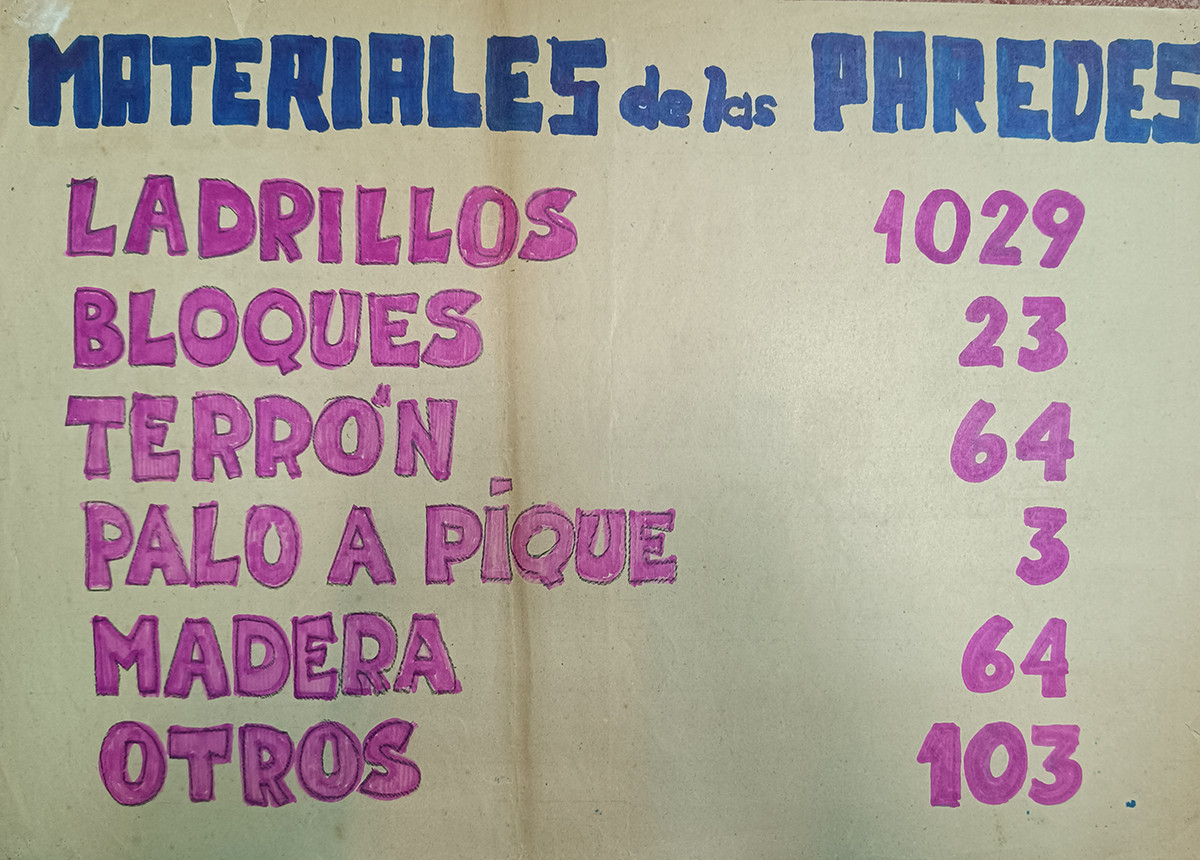 MATERIALES de las PAREDES
LADRILLOS 1029
BLOQUES 23
TERRÓN 64
PALO A PÍQUE 3
MADERA 64
OTROS 103